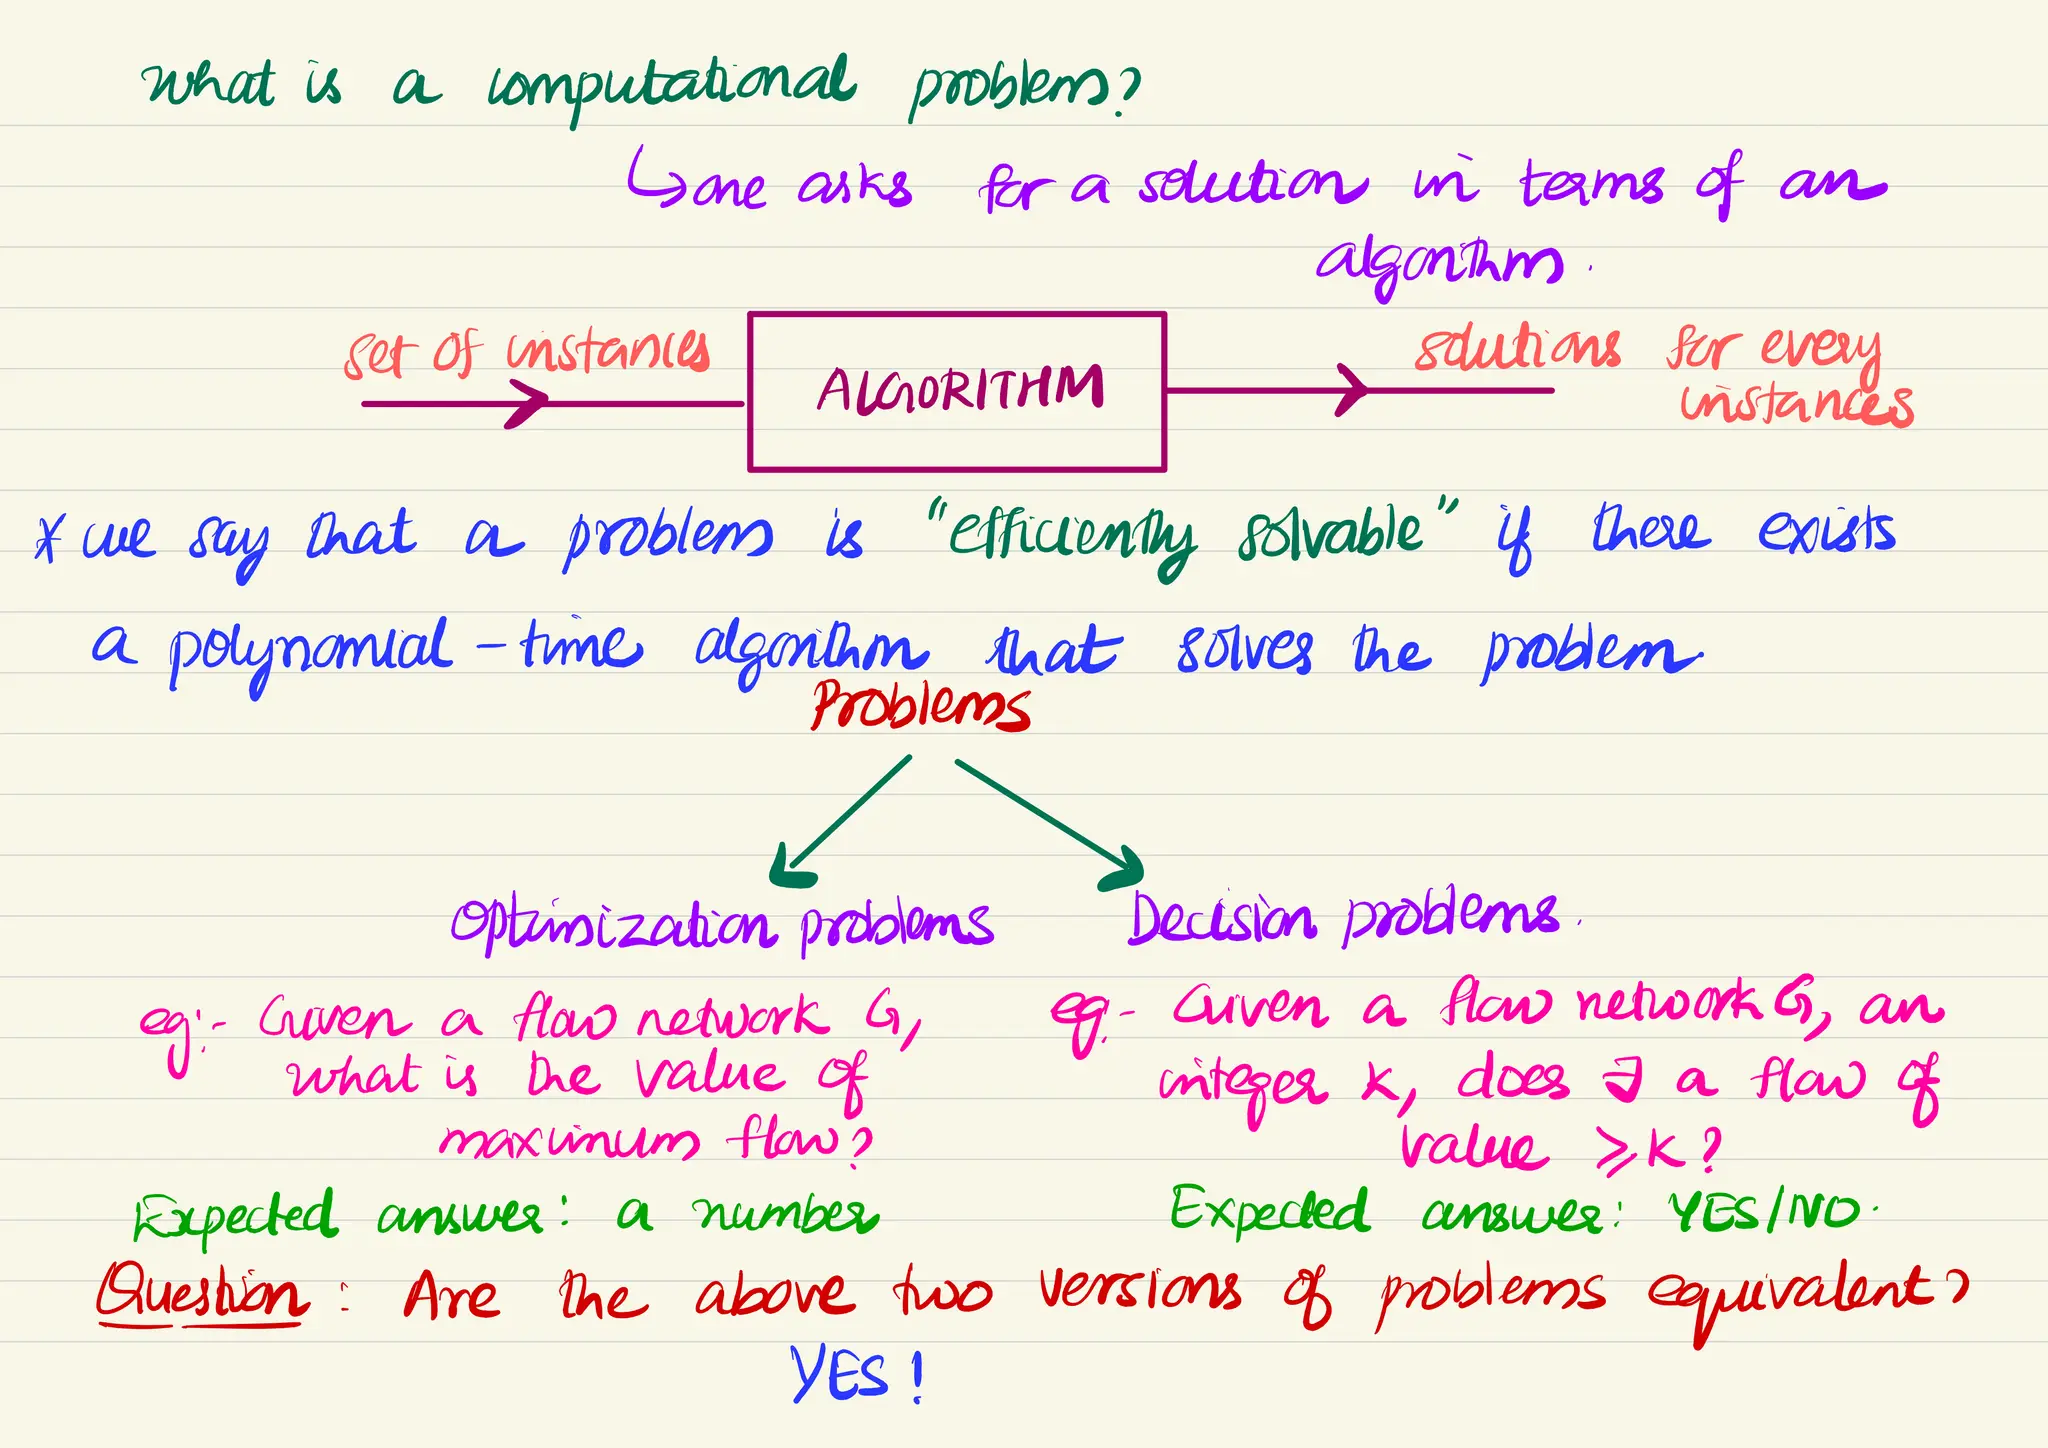 What is a computational problem?
↳ one asks for a solution in terms of an
algorithm.
set of instances
ALGORITHM
solutions for every
instances
* we say that a problem is "efficiently solvable" if there exists
a polynomial-time algorithm that solves the problem.
Problems
Optimization problems
Decision problems.
eg:- Given a flow network G,
what is the value of
maximum flow?
Expected answer: a number
eg:- Given a flow network G, an
integer K, does ∃ a flow of
value ≥ K?
Expected answer: YES/NO.
Question: Are the above two versions of problems equivalent?
YES!